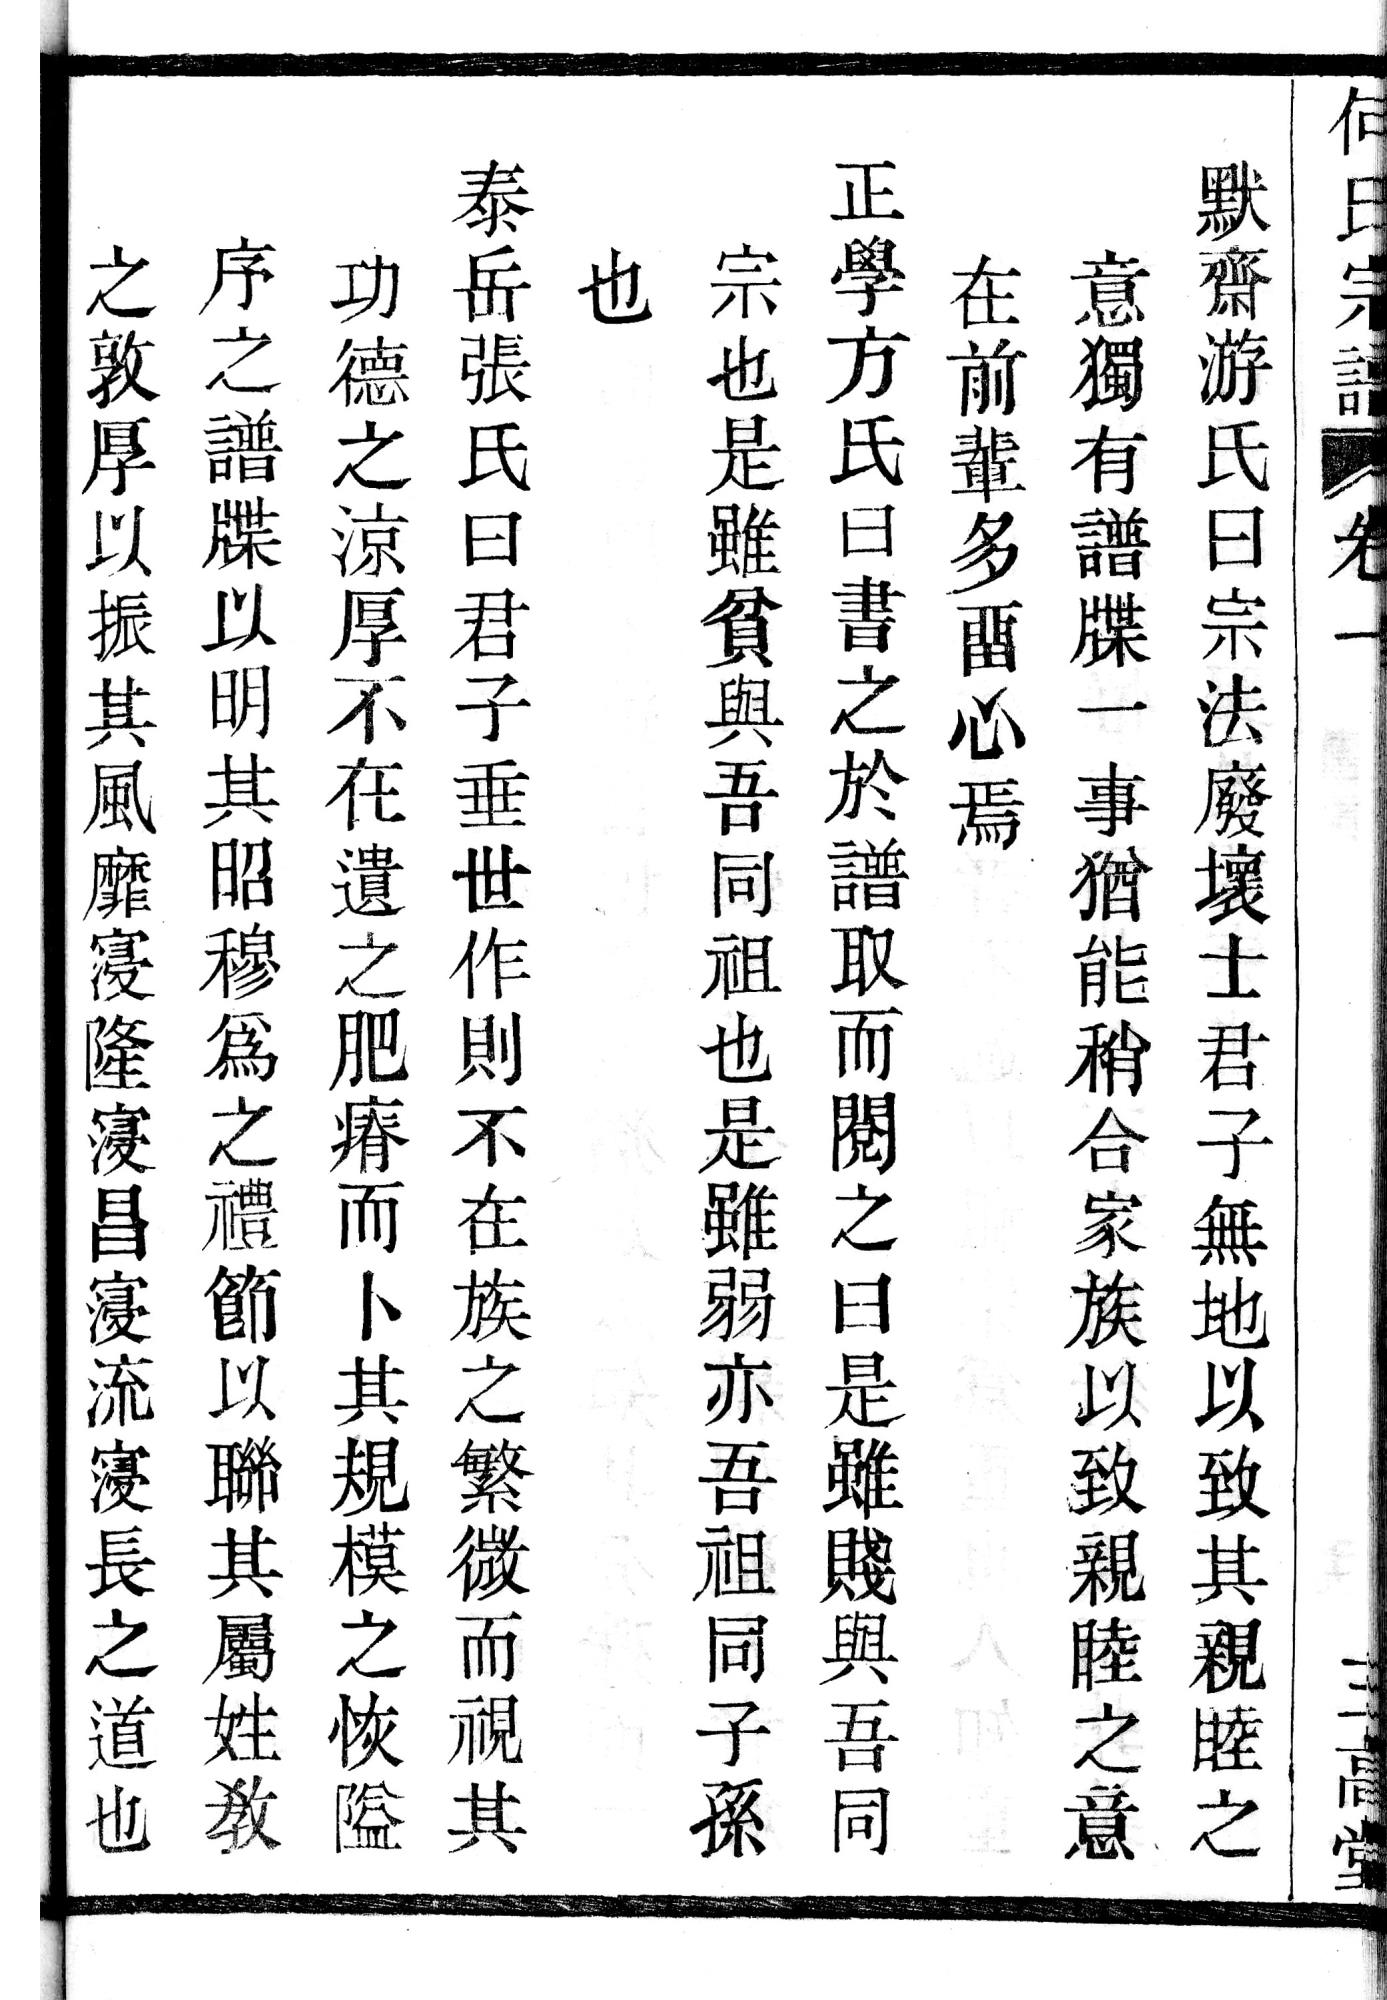 何氏宗譜 卷一 三高堂
默齋游氏曰宗法廢壞士君子無地以致其親睦之
意獨有譜牒一事猶能稍合家族以致親睦之意
在前輩多畱心焉
正學方氏曰書之於譜取而閱之曰是雖賤與吾同
宗也是雖貧與吾同祖也是雖弱亦吾祖同子孫
也
泰岳張氏曰君子垂世作則不在族之繁微而視其
功德之涼厚不在遺之肥瘠而卜其規模之恢隘
序之譜牒以明其昭穆爲之禮節以聯其屬姓教
之敦厚以振其風靡寖隆寖昌寖流寖長之道也